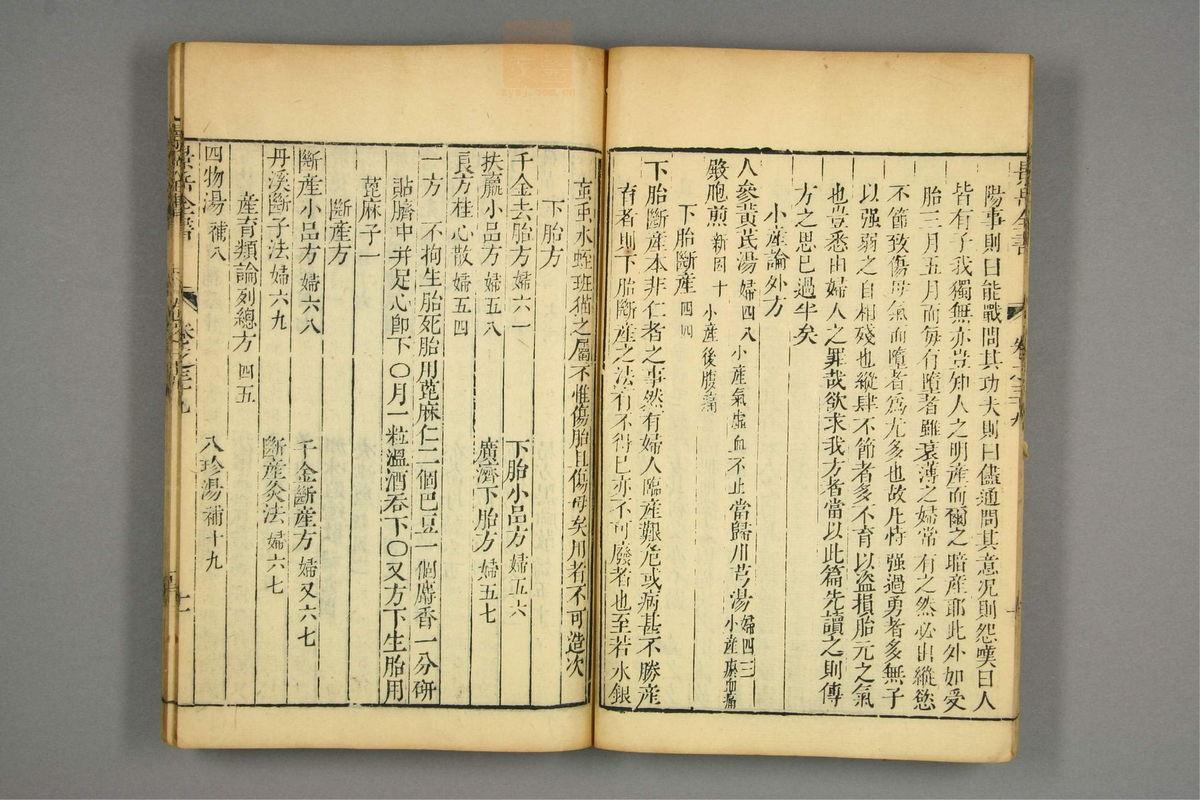 陽事則曰能戰問其功夫則曰儘通問其意况則怨嘆曰人
皆有子我獨無亦豈知人之明產而爾之暗產耶此外如受
胎三月五月而每有墮者雖衰薄之婦常有之然必由縱慾
不節致傷母氣而墮者爲尤多也故凡恃強過勇者多無子
以强弱之自相殘也縱肆不節者多不育以盜損胎元之氣
也豈悉由婦人之罪哉欲求我方者當以此篇先讀之則傳
方之思已過半矣
小產論外方
人參黃芪湯 婦四八 小產氣虛血不止 當歸川芎湯 婦四三 小產瘀血痛
殿胞煎 新因十 小產後腹痛
下胎斷產 四四
下胎斷產本非仁者之事然有婦人臨產艱危或病甚不勝產
育者則下胎斷產之法有不得已亦不可廢者也至若水銀
䖟虫水蛭班猫之屬不惟傷胎且傷母矣用者不可造次
下胎方
千金去胎方 婦六一 下胎小品方 婦五六
扶羸小品方 婦五八 廣濟下胎方 婦五七
良方桂心散 婦五四
一方 不拘生胎死胎用蓖麻仁二個巴豆一個麝香一分研
貼臍中并足心卽下〇月一粒溫酒吞下〇又方下生胎用
蓖麻子一
斷產方
斷產小品方 婦六八 千金斷產方 婦又六七
丹溪斷子法 婦六九 斷產灸法 婦六七
產育類論列總方 四五
四物湯 補八 八珍湯 補十九
景岳全書